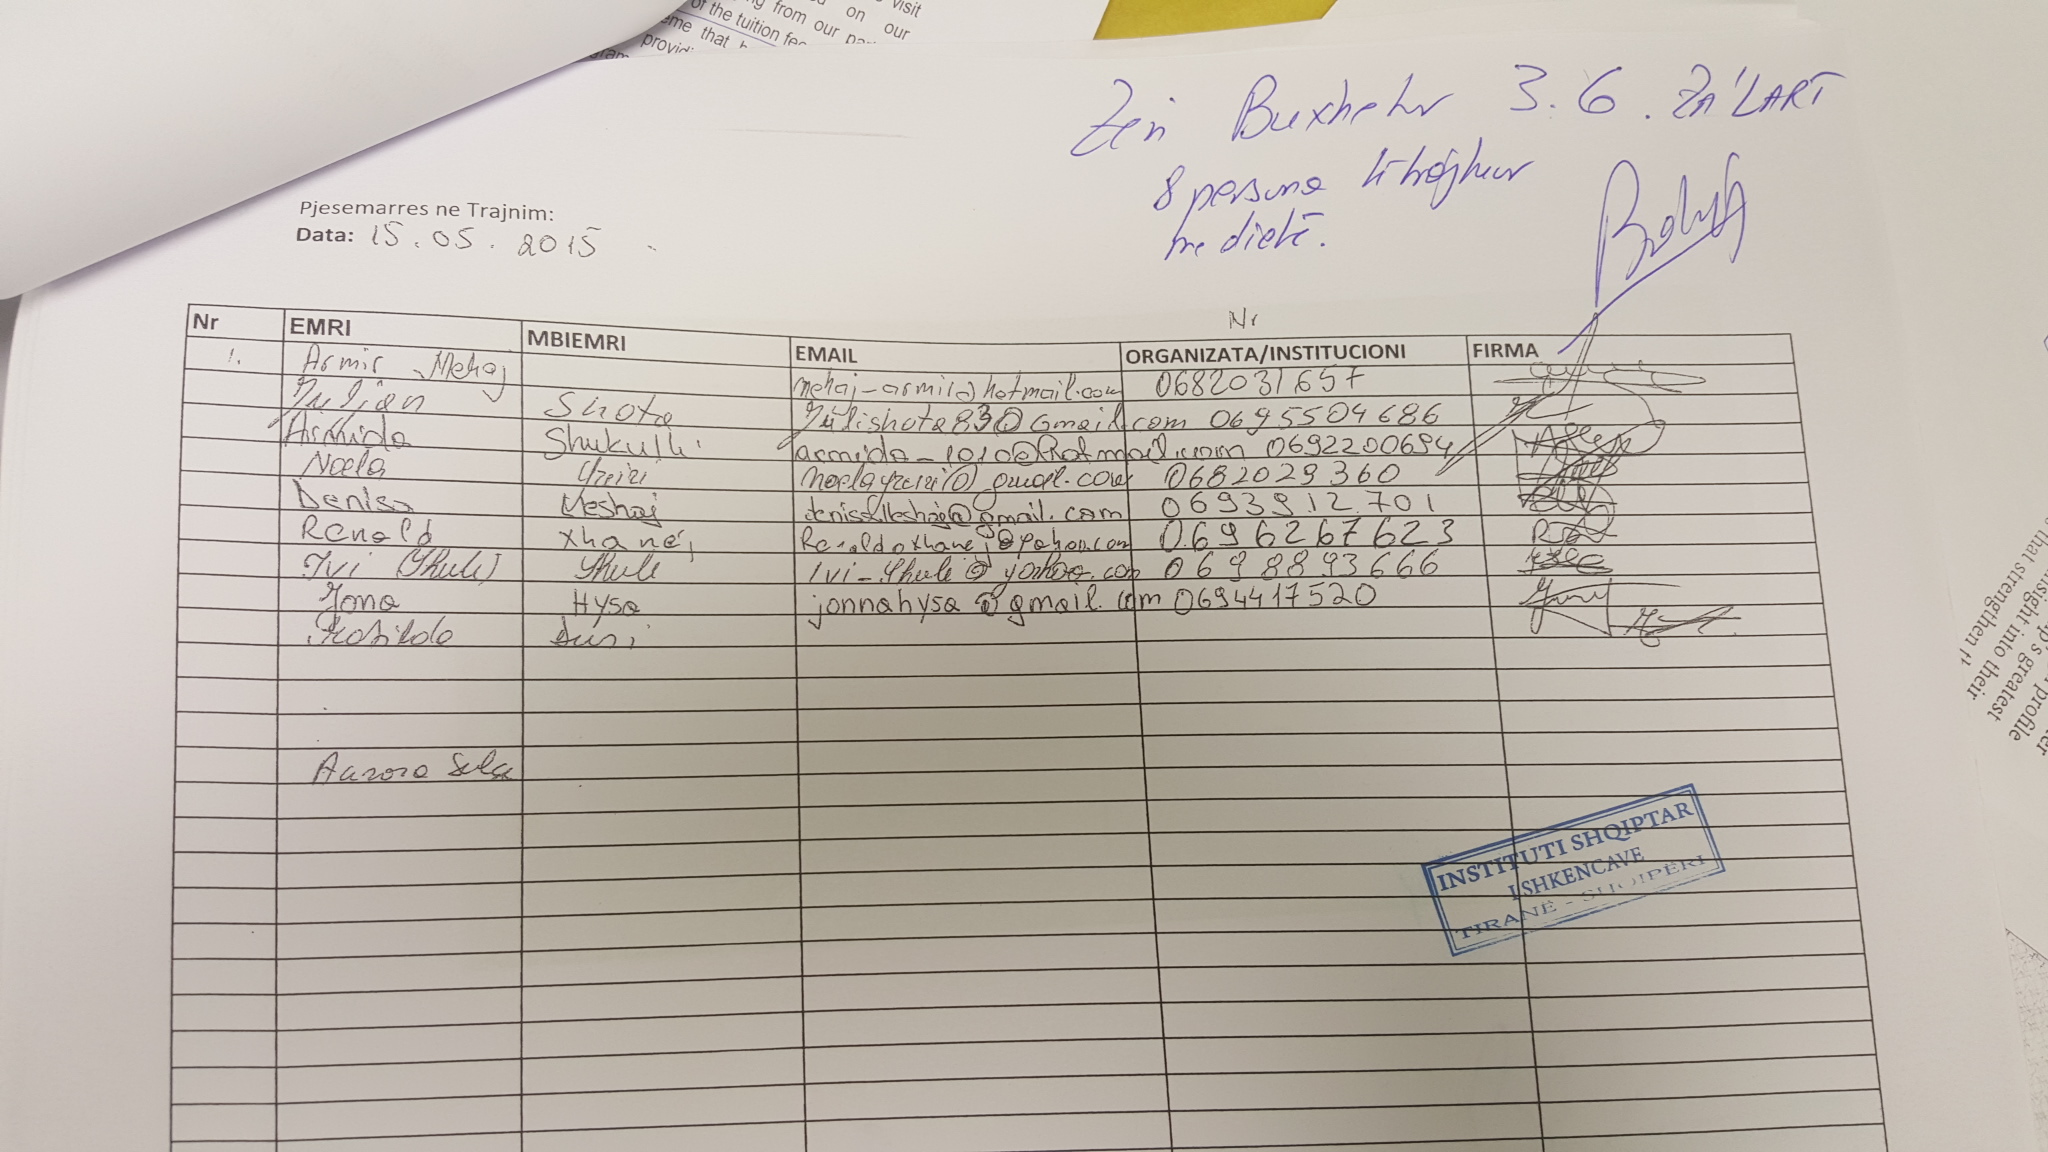 visit
on our
from our
of the tuition fee
that
Zen Buxhetin 3.6. ZA'LART
8 persona
me dietë.
Pjesemarres ne Trajnim:
Data: 15.05.2015
Nr
Nr EMRI MBIEMRI EMAIL ORGANIZATA/INSTITUCIONI FIRMA
1. Armir Mehaj mehaj-armir@hotmail.com 0682031657
Julian Shota Julishota83@Gmail.com 0695504686
Armida Shukulli armida_1010@hotmail.com 0692200694
Noela Yzeiri noelayzeiri@gmail.com 0682029360
Denisa Meshaj 0693912701
Renald Xhanej 0696267623
Ivi (Yhuli) Yhuli Ivi-Yhuli@yahoo.com 0698893666
Jona Hysa jonnahysa@gmail.com 0694417520
Matilda
Aurora
INSTITUTI SHQIPTAR
I SHKENCAVE
TIRANË - SHQIPËRI
that strengthen
insight into their
p's greatest
profile